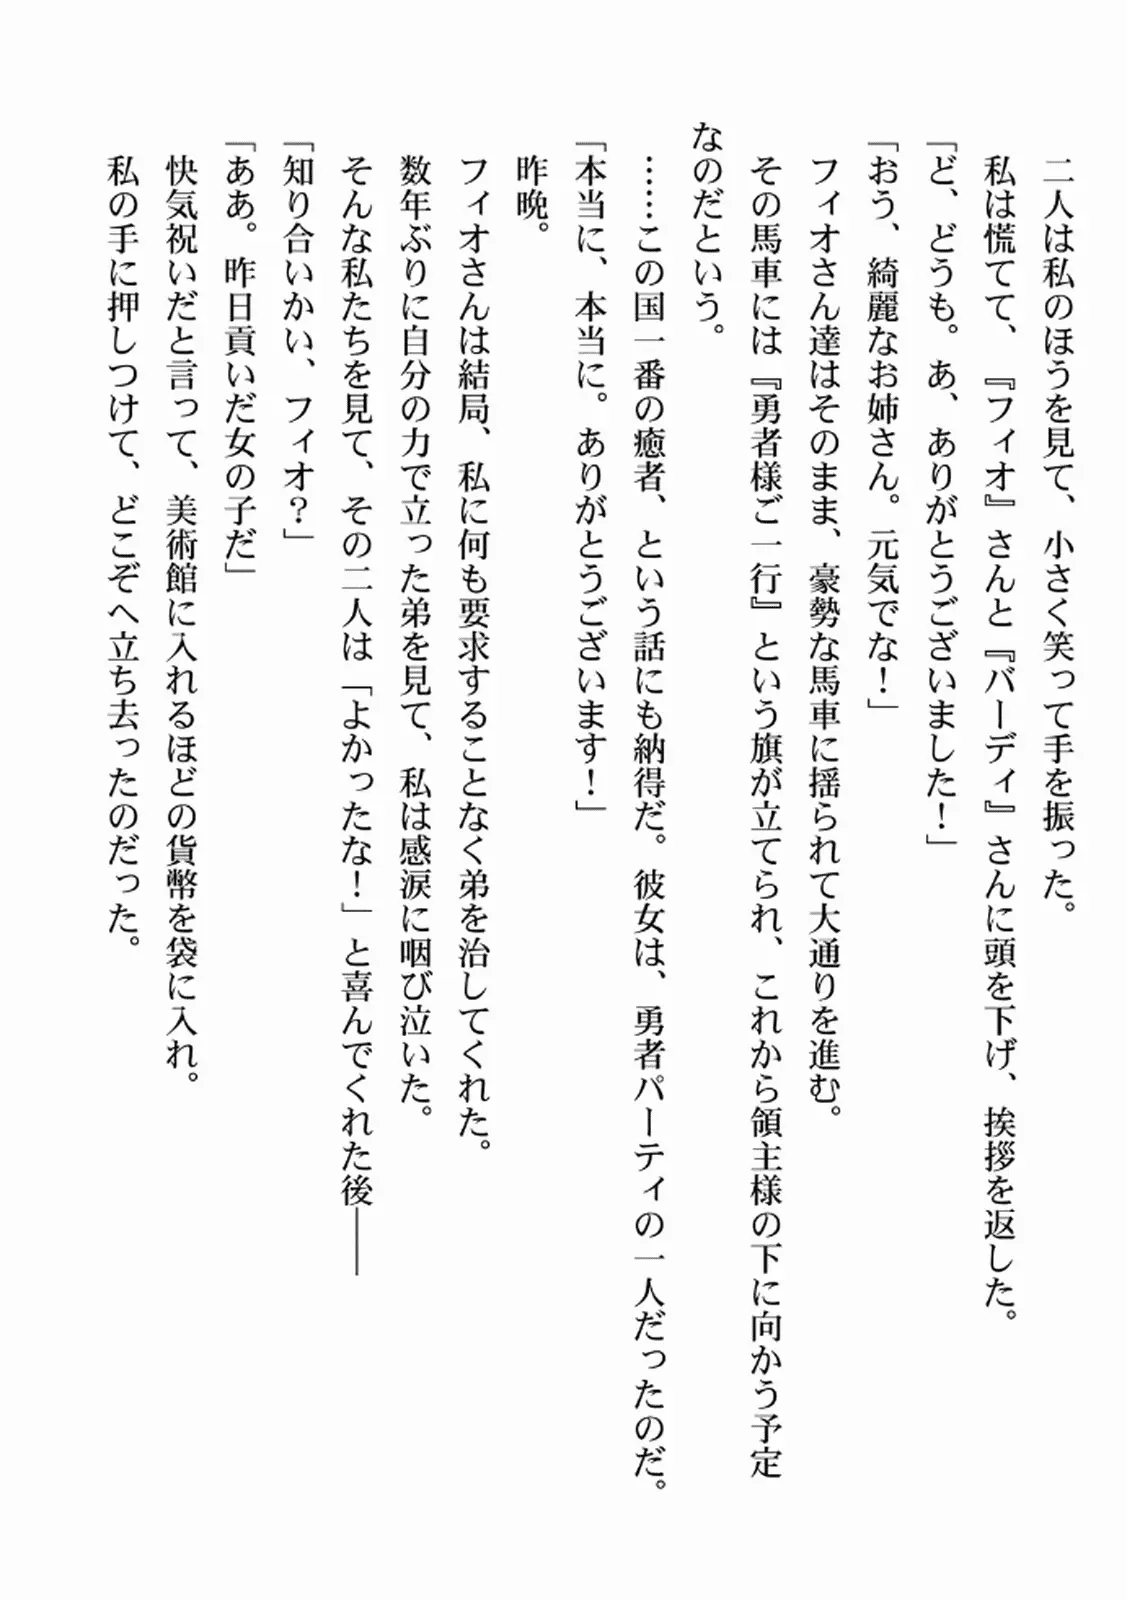 二人は私のほうを見て、小さく笑って手を振った。
私は慌てて、『フィオ』さんと『バーディ』さんに頭を下げ、挨拶を返した。
「ど、どうも。あ、ありがとうございました！」
「おう、綺麗なお姉さん。元気でな！」
フィオさん達はそのまま、豪勢な馬車に揺られて大通りを進む。
その馬車には『勇者様ご一行』という旗が立てられ、これから領主様の下に向かう予定
なのだという。
……この国一番の癒者、という話にも納得だ。彼女は、勇者パーティの一人だったのだ。
「本当に、本当に。ありがとうございます！」
昨晩。
フィオさんは結局、私に何も要求することなく弟を治してくれた。
数年ぶりに自分の力で立った弟を見て、私は感涙に咽び泣いた。
そんな私たちを見て、その二人は「よかったな！」と喜んでくれた後――
「知り合いかい、フィオ？」
「ああ。昨日貢いだ女の子だ」
快気祝いだと言って、美術館に入れるほどの貨幣を袋に入れ。
私の手に押しつけて、どこぞへ立ち去ったのだった。